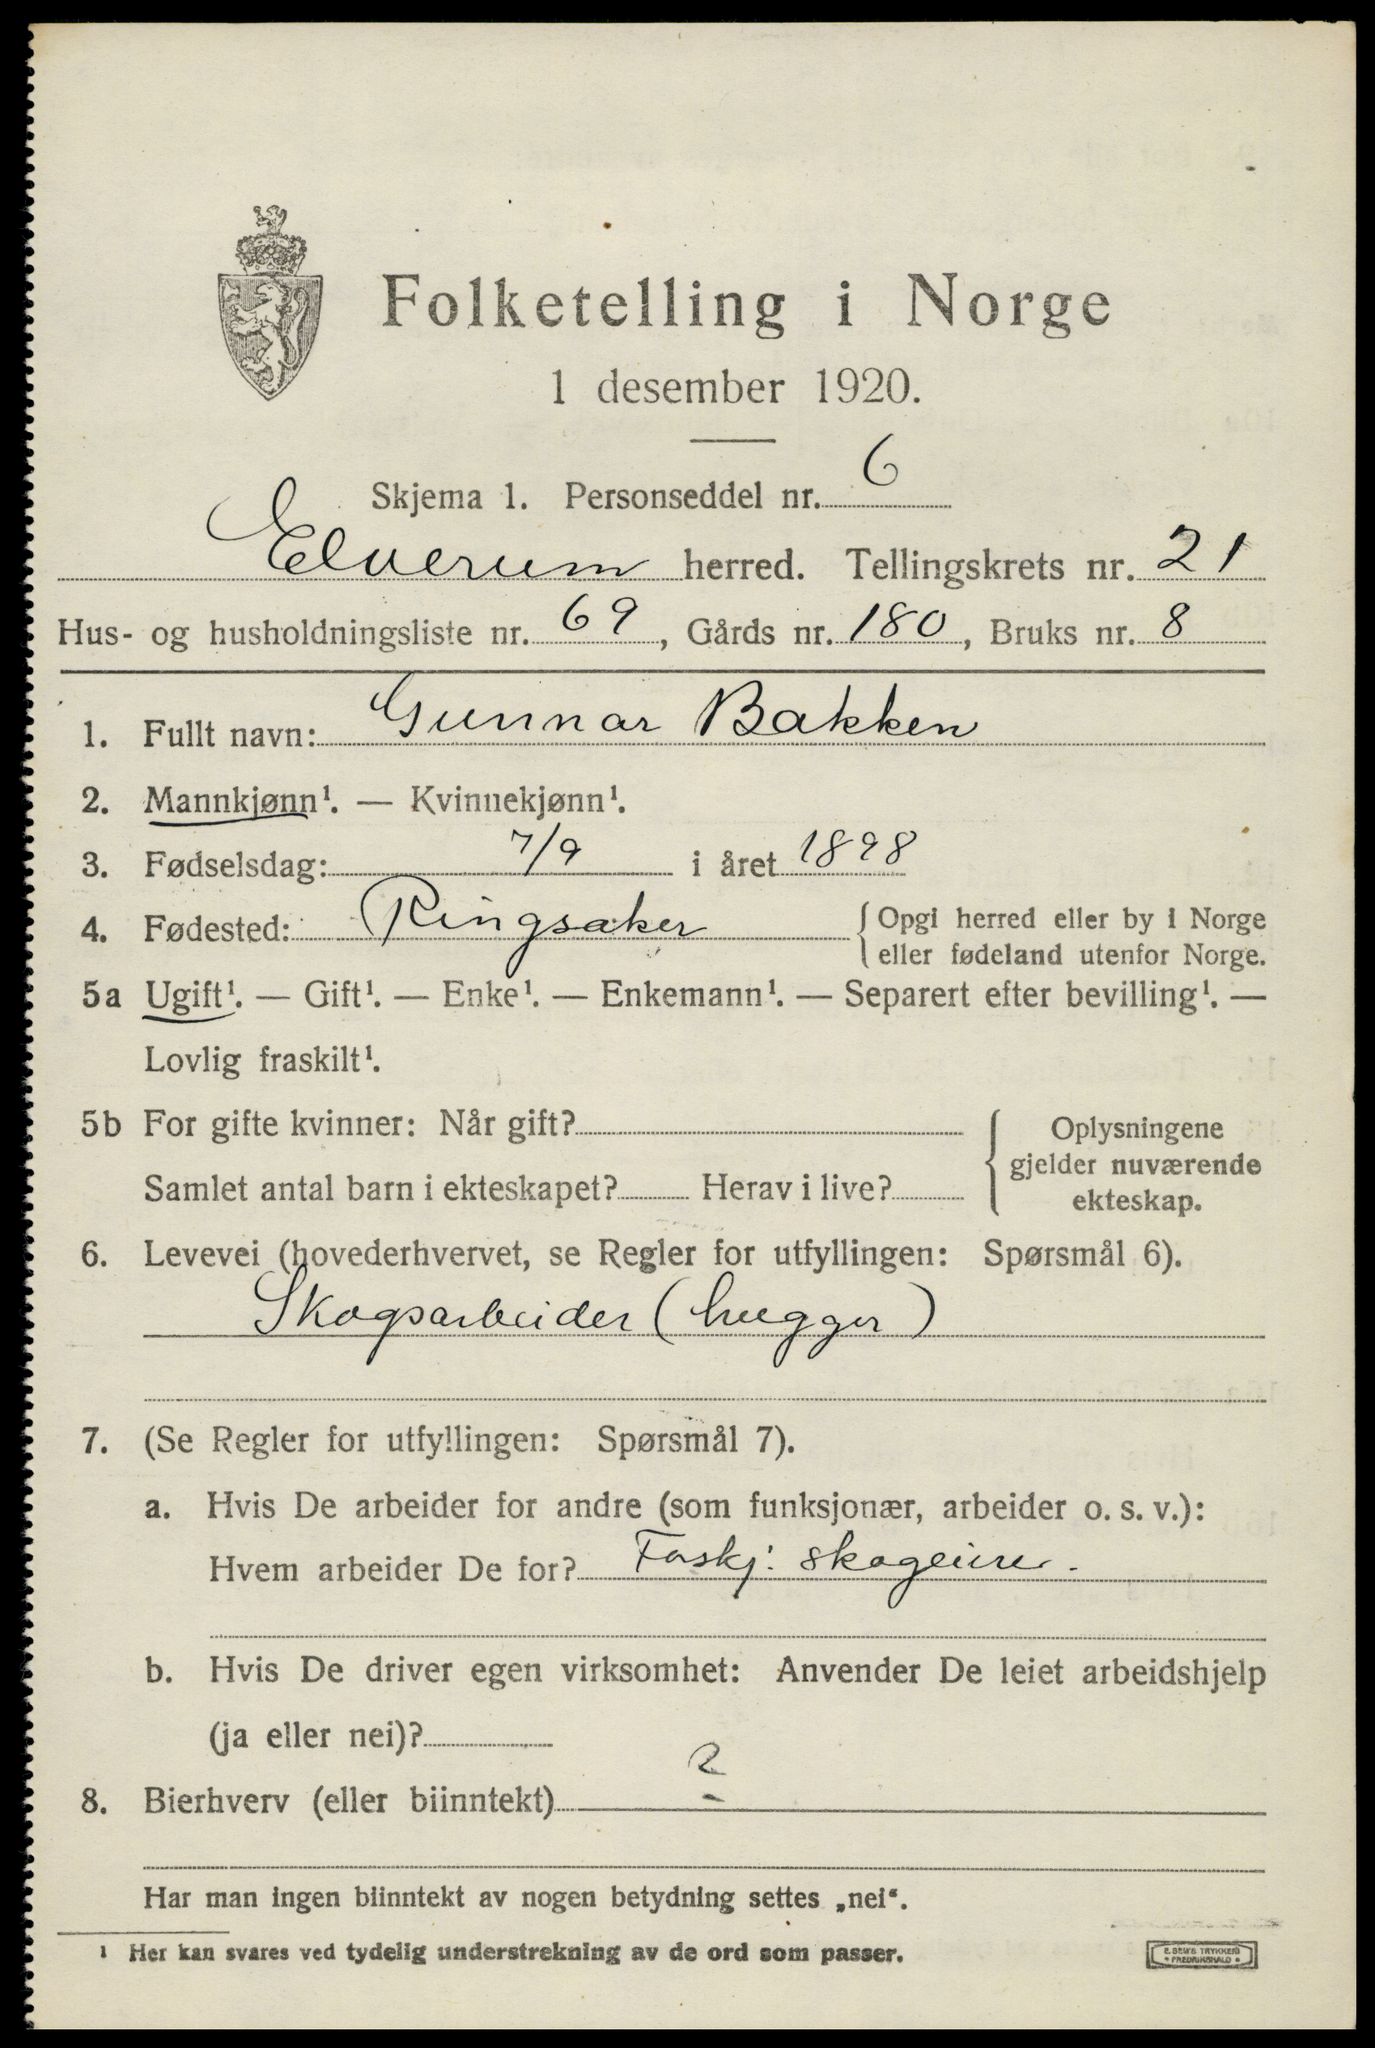 Folketelling i Norge
1 desember 1920.
Skjema 1. Personseddel nr. 6
Elverum herred. Tellingskrets nr. 21
Hus- og husholdningsliste nr. 69, Gårds nr. 180, Bruks nr. 8
1. Fullt navn: Gunnar Bakken
2. Mannkjønn¹. — Kvinnekjønn¹.
3. Fødselsdag: 7/9 i året 1898
4. Fødested: Ringsaker { Opgi herred eller by i Norge
eller fødeland utenfor Norge.
5a Ugift¹. — Gift¹. — Enke¹. — Enkemann¹. — Separert efter bevilling¹. —
Lovlig fraskilt¹.
5b For gifte kvinner: Når gift? { Oplysningene
gjelder nuværende
Samlet antal barn i ekteskapet? Herav i live? ekteskap.
6. Levevei (hovederhvervet, se Regler for utfyllingen: Spørsmål 6).
Skogsarbeider (hugger)
7. (Se Regler for utfyllingen: Spørsmål 7).
a. Hvis De arbeider for andre (som funksjonær, arbeider o. s. v.):
Hvem arbeider De for? Forskj: skogeiere.
b. Hvis De driver egen virksomhet: Anvender De leiet arbeidshjelp
(ja eller nei)?
8. Bierhverv (eller biinntekt) ?
Har man ingen biinntekt av nogen betydning settes „nei“.
¹ Her kan svares ved tydelig understrekning av de ord som passer.
E. SEM'S TRYKKERI
• FREDRIKSHALD •